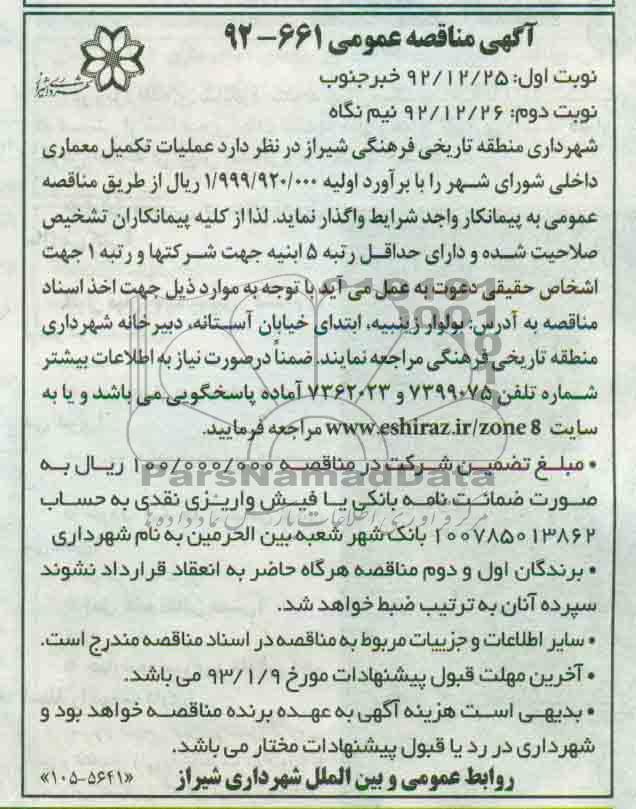 آگهی مناقصه عمومی ۶۶۱-۹۲
شهرداری شیراز
نوبت اول: ۹۲/۱۲/۲۵ خبرجنوب
نوبت دوم: ۹۲/۱۲/۲۶ نیم نگاه
شهرداری منطقه تاریخی فرهنگی شیراز در نظر دارد عملیات تکمیل معماری
داخلی شورای شهر را با برآورد اولیه ۱/۹۹۹/۹۲۰/۰۰۰ ریال از طریق مناقصه
عمومی به پیمانکار واجد شرایط واگذار نماید. لذا از کلیه پیمانکاران تشخیص
صلاحیت شده و دارای حداقل رتبه ۵ ابنیه جهت شرکتها و رتبه ۱ جهت
اشخاص حقیقی دعوت به عمل می آید با توجه به موارد ذیل جهت اخذ اسناد
مناقصه به آدرس: بولوار زینبیه، ابتدای خیابان آستانه، دبیرخانه شهرداری
منطقه تاریخی فرهنگی مراجعه نمایند. ضمناً درصورت نیاز به اطلاعات بیشتر
شماره تلفن ۷۳۹۹۰۷۵ و ۷۳۶۲۰۲۳ آماده پاسخگویی می باشد و یا به
سایت www.eshiraz.ir/zone 8 مراجعه فرمایید.
• مبلغ تضمین شرکت در مناقصه ۱۰۰/۰۰۰/۰۰۰ ریال به
ParsNamadData
صورت ضمانت نامه بانکی یا فیش واریزی نقدی به حساب
مرکز فرآوری اطلاعات پارس نماد داده ها
۱۰۰۷۸۵۰۱۳۸۶۲ بانک شهر شعبه بین الحرمین به نام شهرداری
• برندگان اول و دوم مناقصه هرگاه حاضر به انعقاد قرارداد نشوند
سپرده آنان به ترتیب ضبط خواهد شد.
• سایر اطلاعات و جزییات مربوط به مناقصه در اسناد مناقصه مندرج است.
• آخرین مهلت قبول پیشنهادات مورخ ۹۳/۱/۹ می باشد.
• بدیهی است هزینه آگهی به عهده برنده مناقصه خواهد بود و
شهرداری در رد یا قبول پیشنهادات مختار می باشد.
روابط عمومی و بین الملل شهرداری شیراز «۱۰۵-۵۶۴۱»